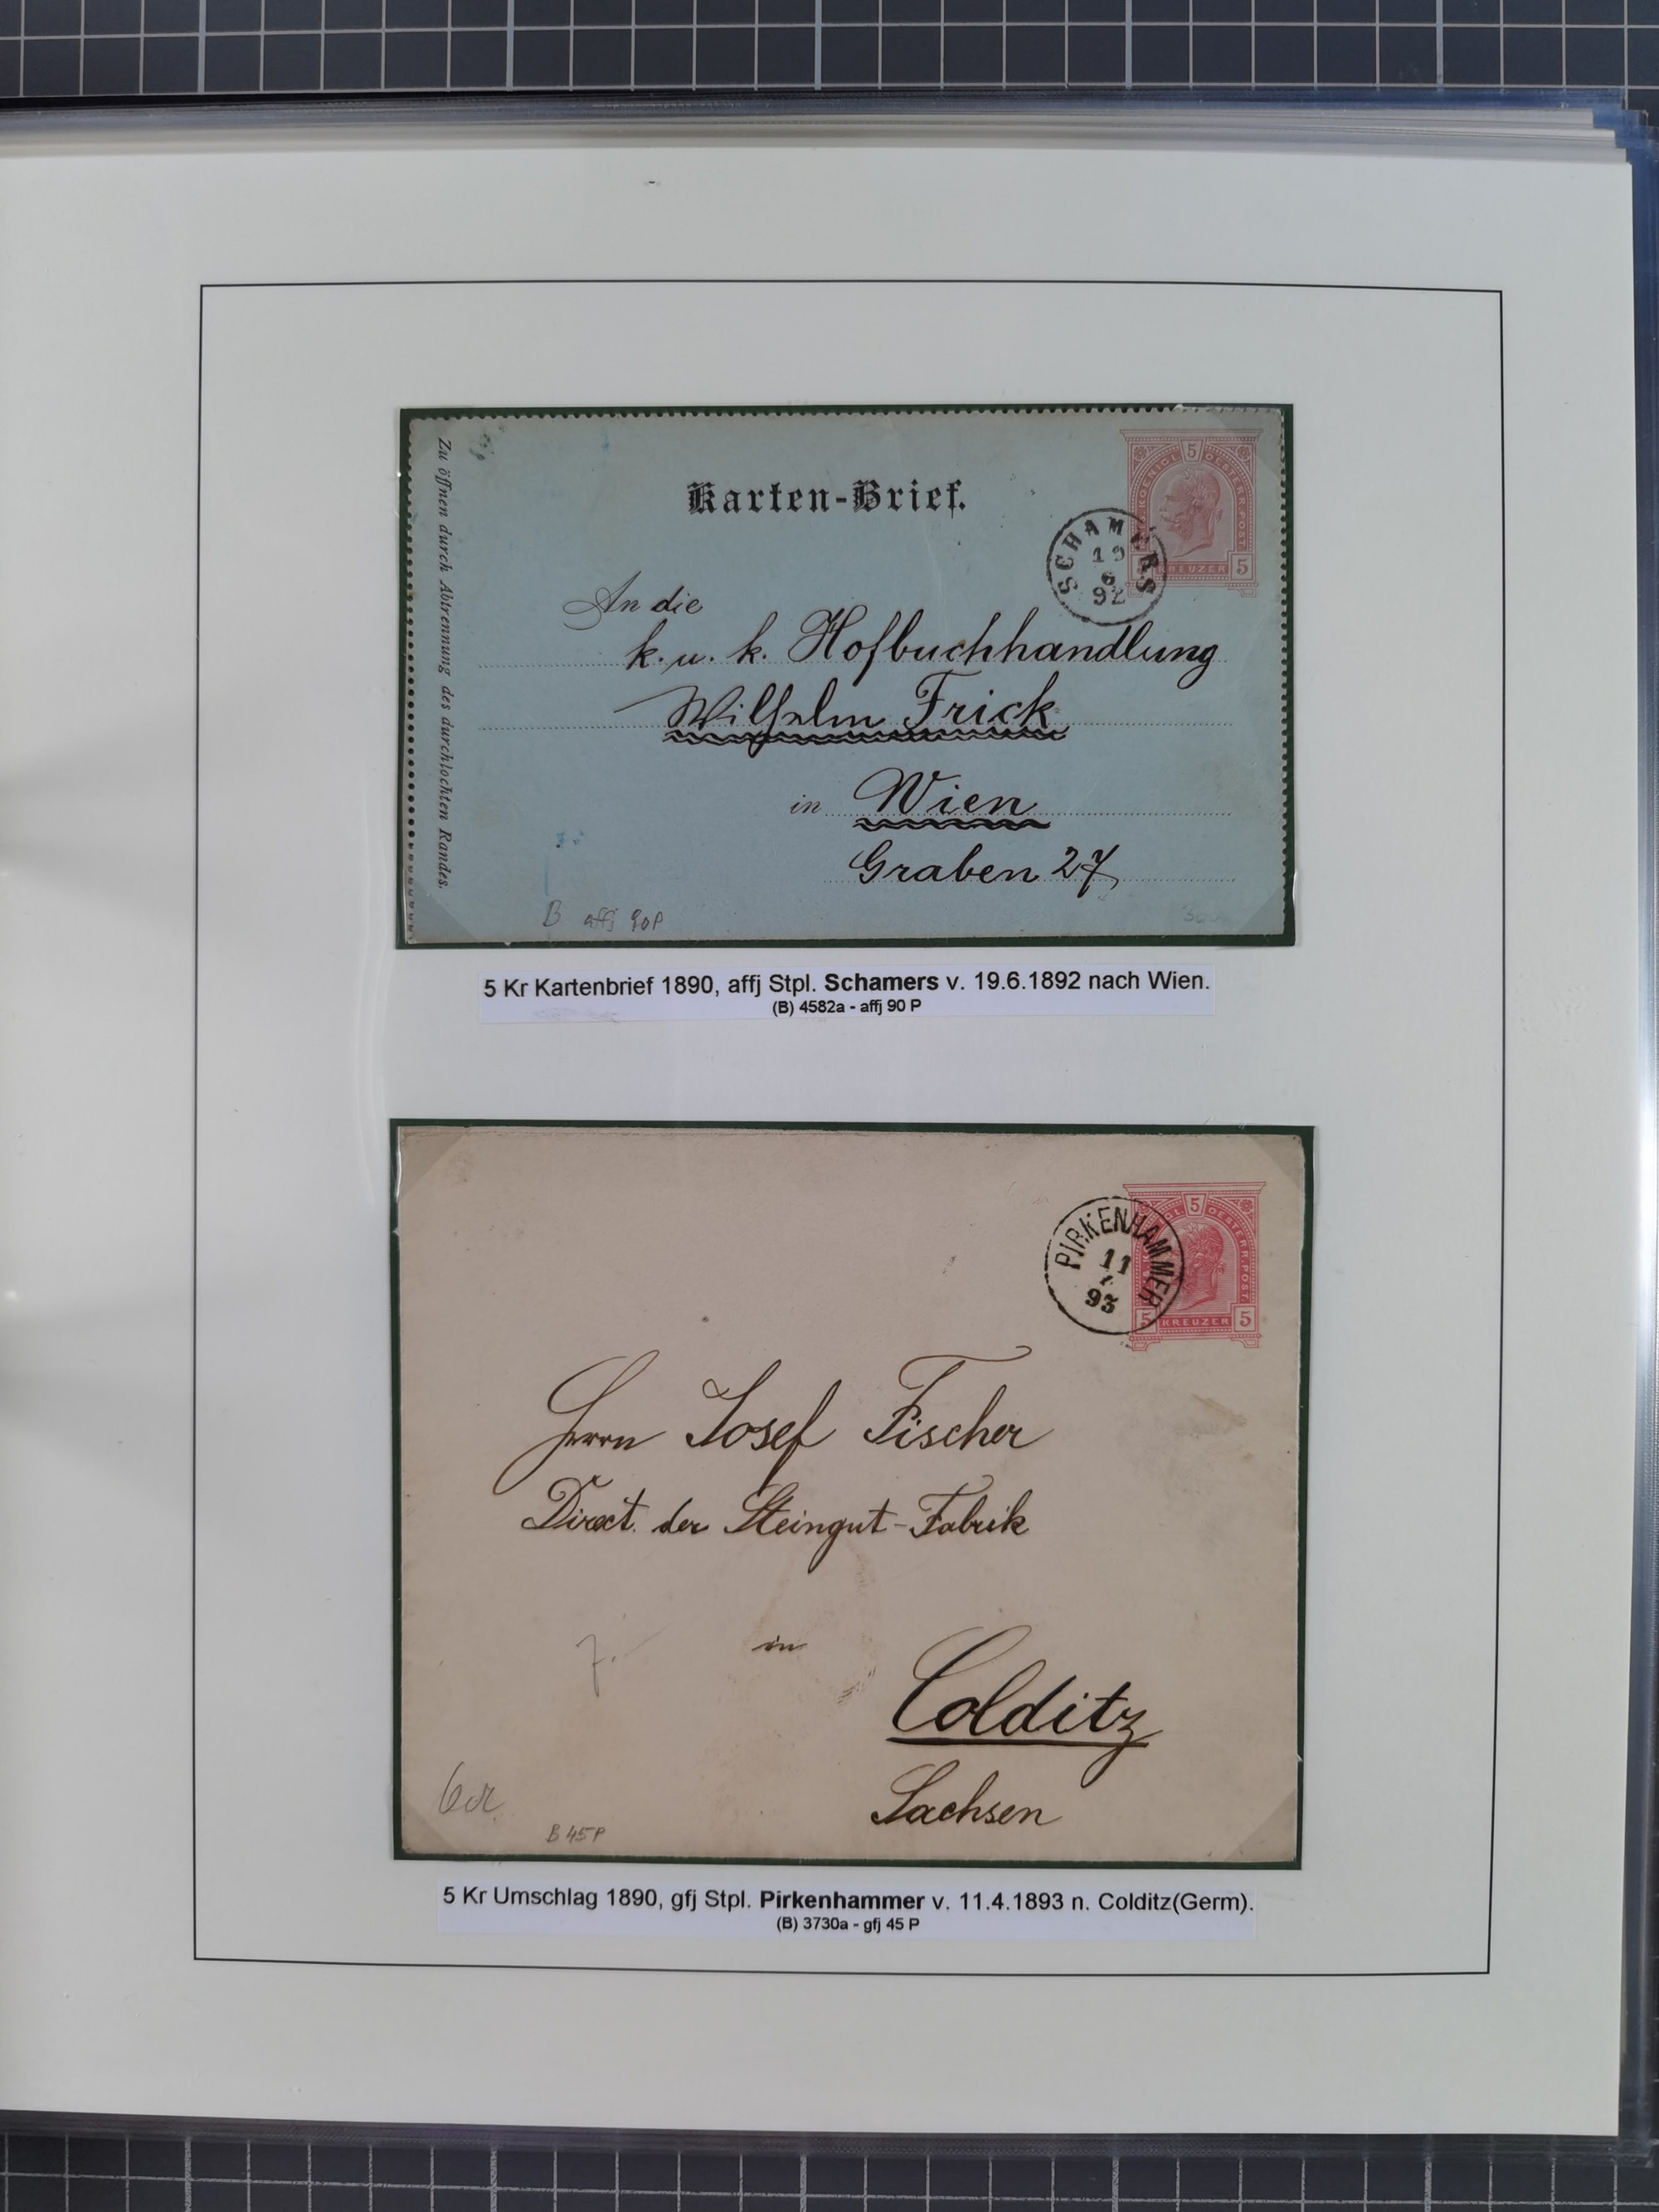 Karten-Brief.
KOENIGL. OESTERR. POST.
5
5 KREUZER 5
SCHAMERS
19
6
92
Zu öffnen durch Abtrennung des durchlochten Randes.
An die
k. u. k. Hofbuchhandlung
Wilhelm Frick
in Wien
Graben 27
B affj 90P
5 Kr Kartenbrief 1890, affj Stpl. Schamers v. 19.6.1892 nach Wien.
(B) 4582a - affj 90 P
5
OESTERR. POST.
5 KREUZER 5
PIRKENHAMMER
11
93
Herrn Josef Fischer
Direct. der Steingut-Fabrik
7.
in
Colditz
Sachsen
B 45P
5 Kr Umschlag 1890, gfj Stpl. Pirkenhammer v. 11.4.1893 n. Colditz(Germ).
(B) 3730a - gfj 45 P